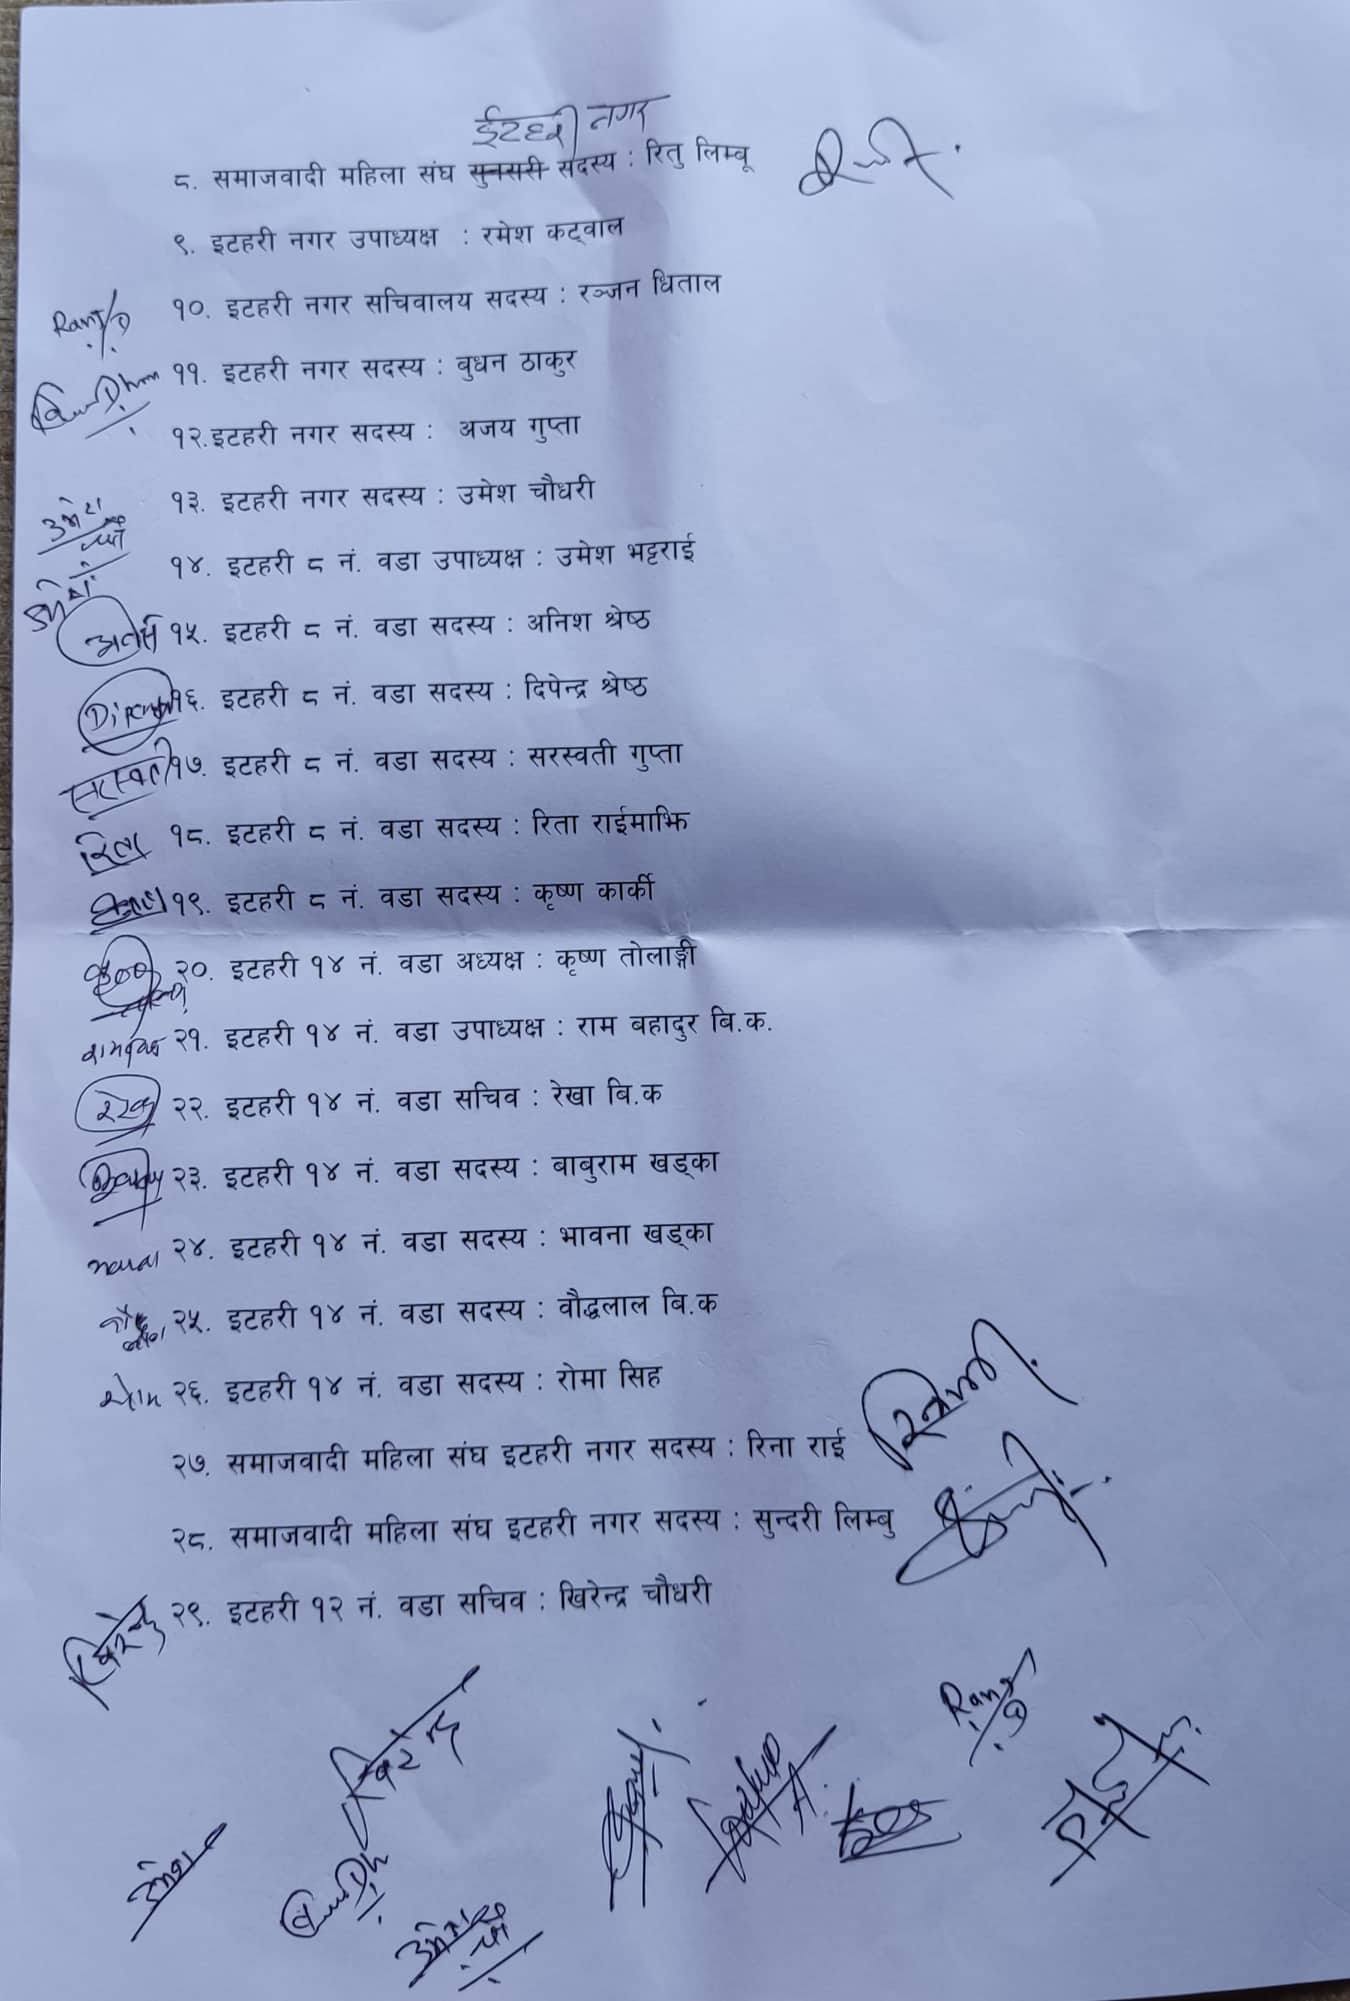 ईटहरी नगर
८. समाजवादी महिला संघ सुनसरी सदस्य : रितु लिम्बू
९. इटहरी नगर उपाध्यक्ष : रमेश कट्वाल
१०. इटहरी नगर सचिवालय सदस्य : रञ्जन धिताल
११. इटहरी नगर सदस्य : वुधन ठाकुर
१२.इटहरी नगर सदस्य : अजय गुप्ता
१३. इटहरी नगर सदस्य : उमेश चौधरी
१४. इटहरी ८ नं. वडा उपाध्यक्ष : उमेश भट्टराई
१५. इटहरी ८ नं. वडा सदस्य : अनिश श्रेष्ठ
१६. इटहरी ८ नं. वडा सदस्य : दिपेन्द्र श्रेष्ठ
सरस्वती १७. इटहरी ८ नं. वडा सदस्य : सरस्वती गुप्ता
रिता १८. इटहरी ८ नं. वडा सदस्य : रिता राईमाझि
१९. इटहरी ८ नं. वडा सदस्य : कृष्ण कार्की
२०. इटहरी १४ नं. वडा अध्यक्ष : कृष्ण तोलाङ्गी
२१. इटहरी १४ नं. वडा उपाध्यक्ष : राम बहादुर बि.क.
२२. इटहरी १४ नं. वडा सचिव : रेखा बि.क
२३. इटहरी १४ नं. वडा सदस्य : बाबुराम खड्का
२४. इटहरी १४ नं. वडा सदस्य : भावना खड्का
२५. इटहरी १४ नं. वडा सदस्य : वौद्धलाल बि.क
२६. इटहरी १४ नं. वडा सदस्य : रोमा सिह
२७. समाजवादी महिला संघ इटहरी नगर सदस्य : रिना राई
२८. समाजवादी महिला संघ इटहरी नगर सदस्य : सुन्दरी लिम्बु
खिरेन्द्र २९. इटहरी १२ नं. वडा सचिव : खिरेन्द्र चौधरी
खिरेन्द्र
उमेश